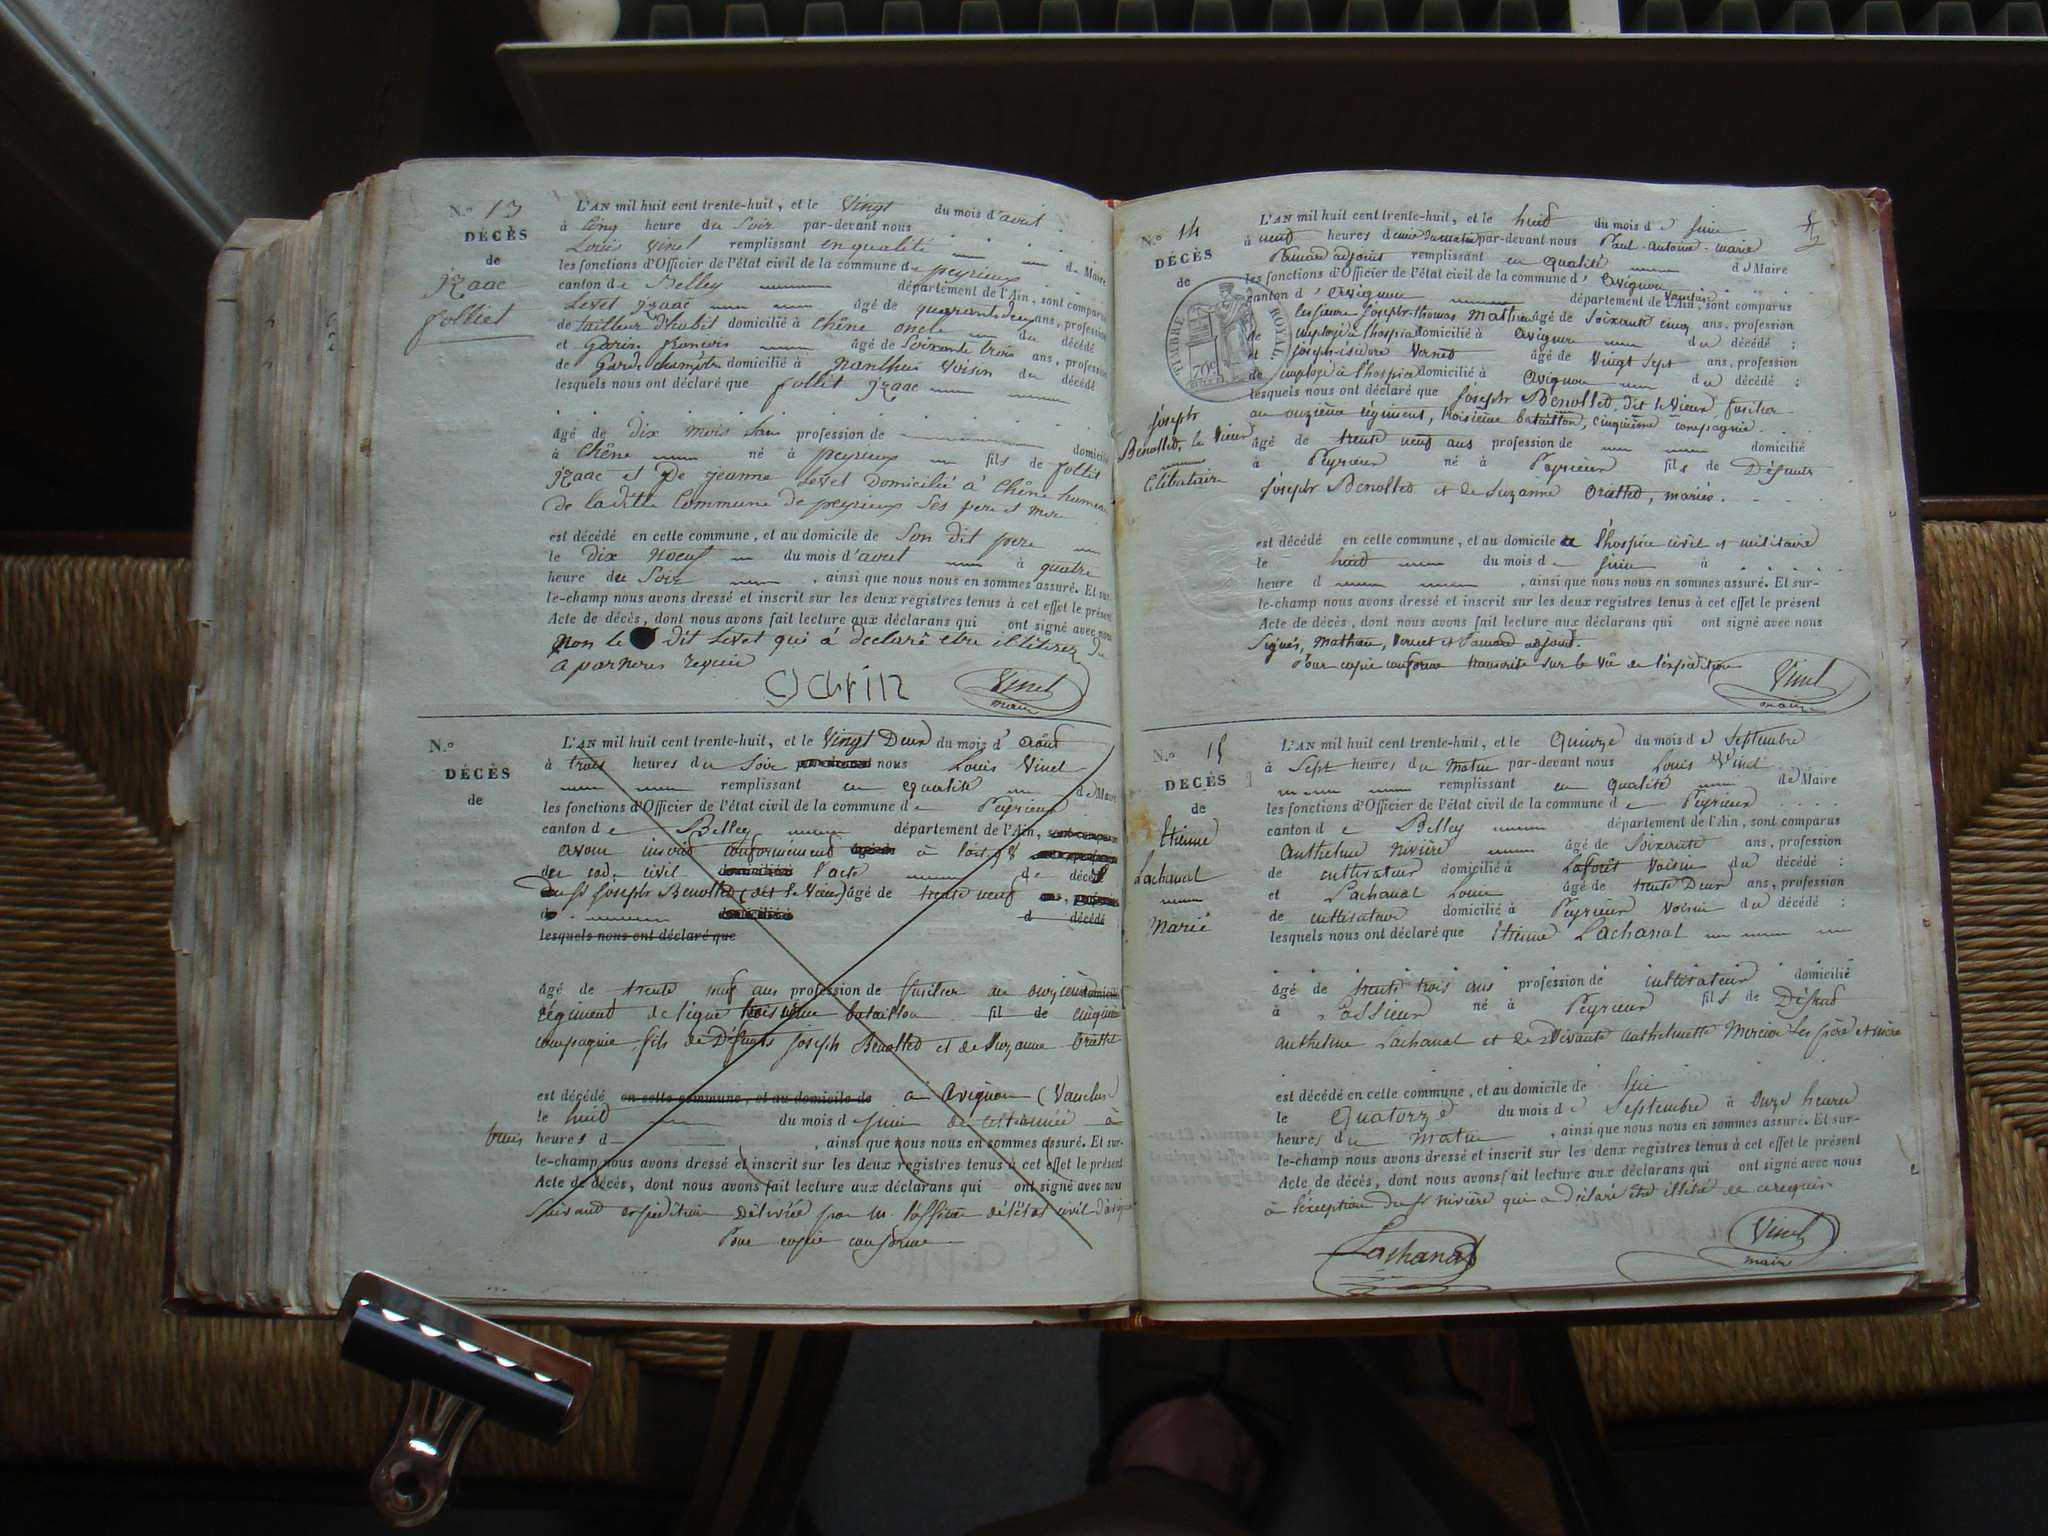 N.° 13
DÉCÈS
de
jzaac
folliet
L'AN mil huit cent trente-huit, et le vingt du mois d'avril
à cinq heure du Soir par-devant nous
Louis Vinet remplissant en qualité de Maire
les fonctions d'Officier de l'état civil de la commune de peyrieux
canton de Belley département de l'Ain, sont comparus
Levet jzaac âgé de quarante deux ans, profession
de tailleur d'habit domicilié à Chêne oncle du décédé
et Garin francois âgé de Soixante trois ans, profession
de Garde champetre domicilié à nanthui voisin du décédé
lesquels nous ont déclaré que follit jzaac
âgé de dix mois Sans profession de domicilié
à Chêne né à peyrieux fils de follit
jzaac et de jeanne Levet domicilié à Chêne hameau
de laditte Commune de peyrieux Ses pere et mere
est décédé en cette commune, et au domicile de Son dit pere
le dix noeuf du mois d'avril à quatre
heure du Soir , ainsi que nous nous en sommes assuré. Et sur-
le-champ nous avons dressé et inscrit sur les deux registres tenus à cet effet le présent
Acte de décès, dont nous avons fait lecture aux déclarans qui ont signé avec nous
Non le dit Levet qui à declaré etre illiterez de
requie
Garin Vinet
maire
N.°
DÉCÈS
de
L'AN mil huit cent trente-huit, et le Vingt Deux du mois d' Août
à trois heures du Soir par-devant nous Louis Vinet
remplissant en qualité de Maire
les fonctions d'Officier de l'état civil de la commune de Peyrieux
canton de Belley département de l'Ain, sont comparus
avons inscrit Conformement à
du cod. civil l'acte de décès
du Sr joseph Benolled (dit le Vieux) âgé de trente neuf ans, profession
domicilié d décédé
lesquels nous ont déclaré que
âgé de trente neuf ans profession de fusilier au onzième domicilié
régiment de ligne troisième bataillon fil de cinquième
compagnie fils de Défunts joseph Benolled et de Suzanne
est décédé en cette commune, et au domicile de à Avignon (Vaucluse
le huit du mois de juin de cette année à
trois heures d , ainsi que nous nous en sommes assuré. Et sur-
le-champ nous avons dressé et inscrit sur les deux registres tenus à cet effet le présent
Acte de décès, dont nous avons fait lecture aux déclarans qui ont signé avec nous
Suivant expédition Délivrée par M. l'officier de l'état civil d'avignon
Pour copie conforme
N.° 14
DÉCÈS
de
TIMBRE ROYAL.
70c
joseph
Benolled, le Vieux
Célibataire
L'AN mil huit cent trente-huit, et le huit du mois de juin
à neuf heures du matin par-devant nous Paul-antoine-marie
adjoint remplissant en qualité de Maire
les fonctions d'Officier de l'état civil de la commune d' Avignon
canton d' Avignon département de l'Ain, Vaucluse sont comparus
les sieurs joseph-thomas Mathieu âgé de soixante cinq ans, profession
de employé à l'hospice domicilié à Avignon du décédé ;
et joseph-isidore Vernet âgé de Vingt Sept ans, profession
de employé à l'hospice domicilié à Avignon du décédé ;
lesquels nous ont déclaré que joseph Benolled, dit le Vieux, fusilier
au onzième régiment, troisième bataillon, cinquième compagnie
âgé de trente neuf ans profession de domicilié
à Peyrieux né à Peyrieux fils de Défunts
joseph Benolled et de Suzanne , mariés.
est décédé en cette commune, et au domicile de l'hospice civil et militaire
le huit du mois de juin à
heure d , ainsi que nous nous en sommes assuré. Et sur-
le-champ nous avons dressé et inscrit sur les deux registres tenus à cet effet le présent
Acte de décès, dont nous avons fait lecture aux déclarans qui ont signé avec nous
Signés, Mathieu, Vernet et adjoint.
Pour copie conforme transcrite sur le Vu de l'expédition
Vinet
maire
N.° 15
DÉCÈS
de
Etienne
Lachanal
Marié
L'AN mil huit cent trente-huit, et le Quinze du mois de Septembre
à Sept heures du matin par-devant nous Louis Vinet
remplissant en qualité de Maire
les fonctions d'Officier de l'état civil de la commune de Peyrieux
canton de Belley département de l'Ain, sont comparus
Anthelme Rivière âgé de Soixante ans, profession
de cultivateur domicilié à Laforêt voisin du décédé ;
et Lachanal Louis âgé de trente Deux ans, profession
de cultivateur domicilié à Peyrieux voisin du décédé ;
lesquels nous ont déclaré que Etienne Lachanal
âgé de trente trois ans profession de cultivateur domicilié
à né à Peyrieux fils de Défunt
anthelme Lachanal et de Vivante anthelmette Mercier Ses père et mère
est décédé en cette commune, et au domicile de Sien
le Quatorze du mois de Septembre à onze heures
heures du matin , ainsi que nous nous en sommes assuré. Et sur-
le-champ nous avons dressé et inscrit sur les deux registres tenus à cet effet le présent
Acte de décès, dont nous avons fait lecture aux déclarans qui ont signé avec nous
à l'exception du Sr Rivière qui a déclaré être illitéré de ce requis
Lachanal Vinet
maire